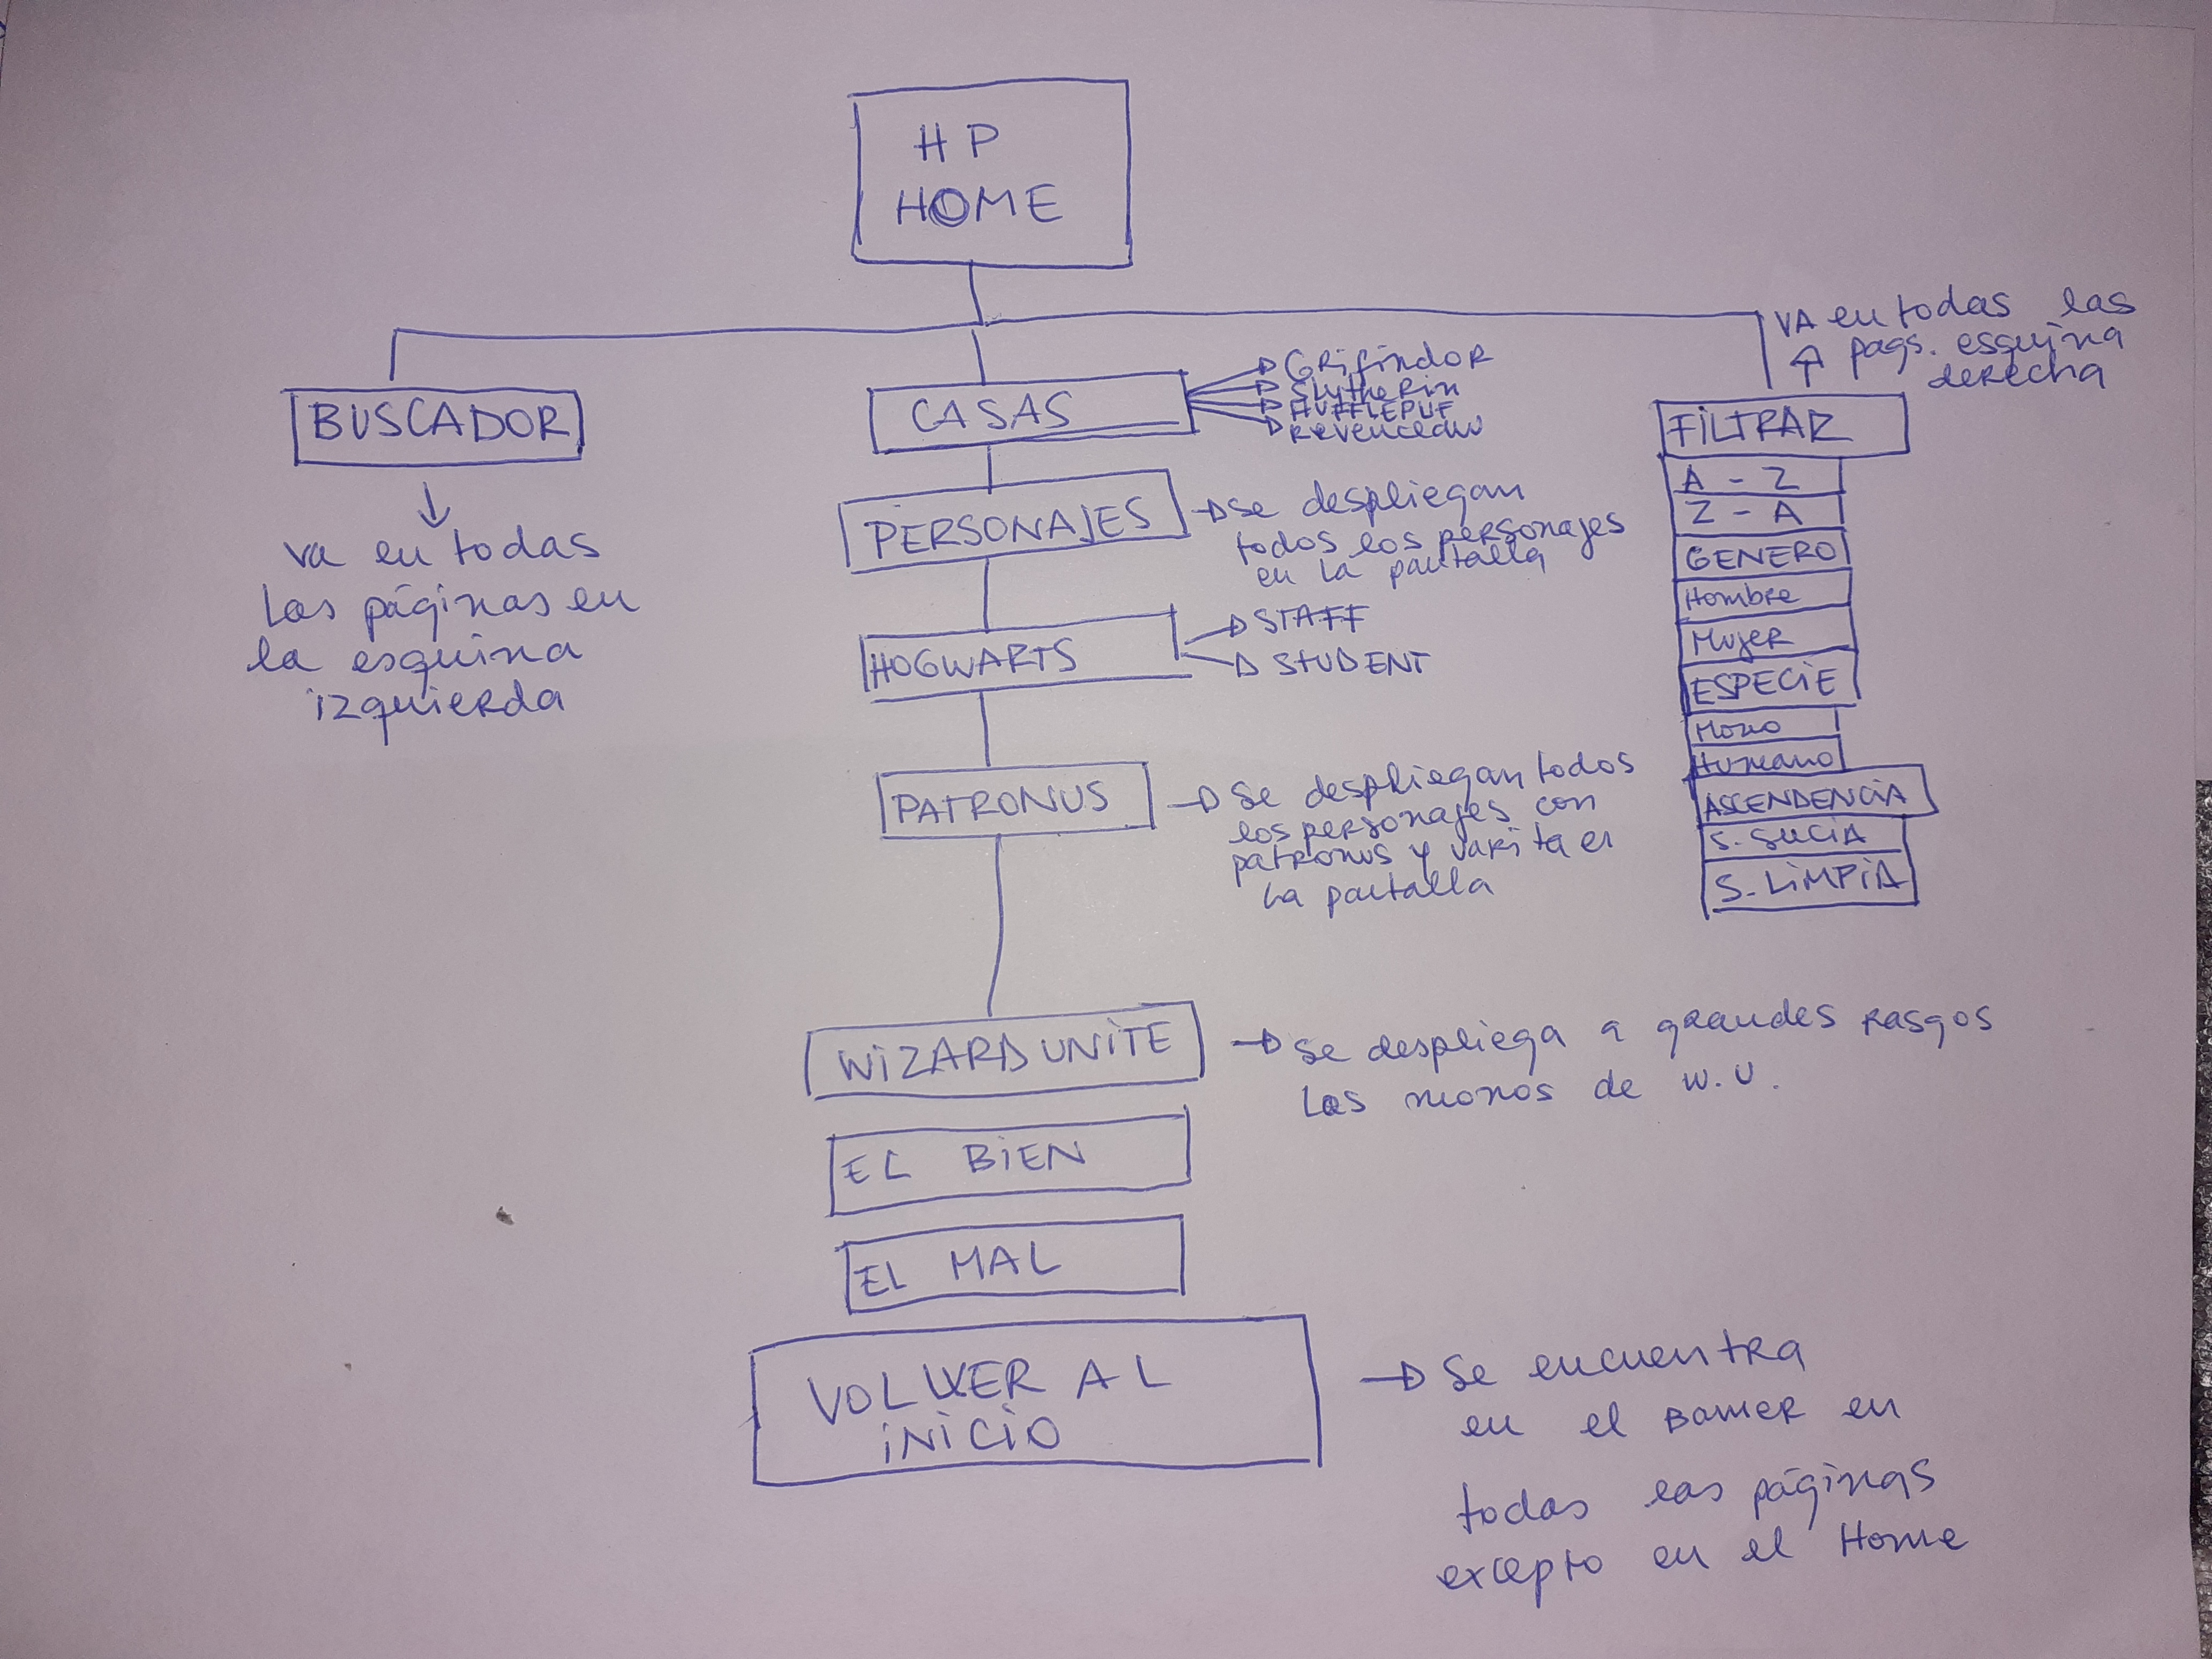 HP
HOME
VA en todas las
pags. esquina
derecha
BUSCADOR
va en todas
las páginas en
la esquina
izquierda
CASAS
GRifindoR
SlytheRin
HUFFLEPUF
Revenceaw
PERSONAJES
Se despliegan
todos los personajes
en la pantalla
HOGWARTS
STAFF
STUDENT
PATRONUS
Se despliegan todos
los personajes con
patronus y varita en
la pantalla
WIZARD UNITE
Se despliega a grandes rasgos
los monos de W.U.
EL BIEN
EL MAL
VOLVER AL
INICIO
Se encuentra
en el Banner en
todas las páginas
excepto en el Home
FILTRAR
A - Z
Z - A
GENERO
Hombre
Mujer
ESPECIE
Mono
Humano
ASCENDENCIA
S. SUCIA
S. LIMPIA